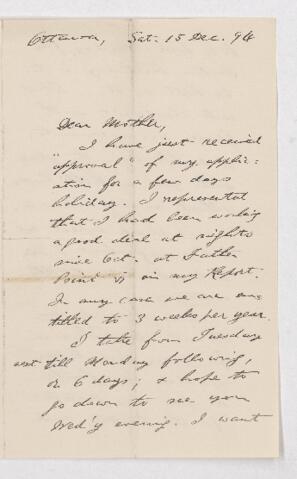 Ottawa, Sat. 15 Dec. 94
Dear Mother,
I have just received
"approval" of my applic-
ation for a few days
holiday. I represented
that I had been working
a good deal at nights
since Oct. at Father
Point & on my Report.
In any case we are en-
titled to 3 weeks per year.
I take from Tuesday
next till Monday following,
or 6 days; & hope to
go down to see you
Wed'y evening. I want